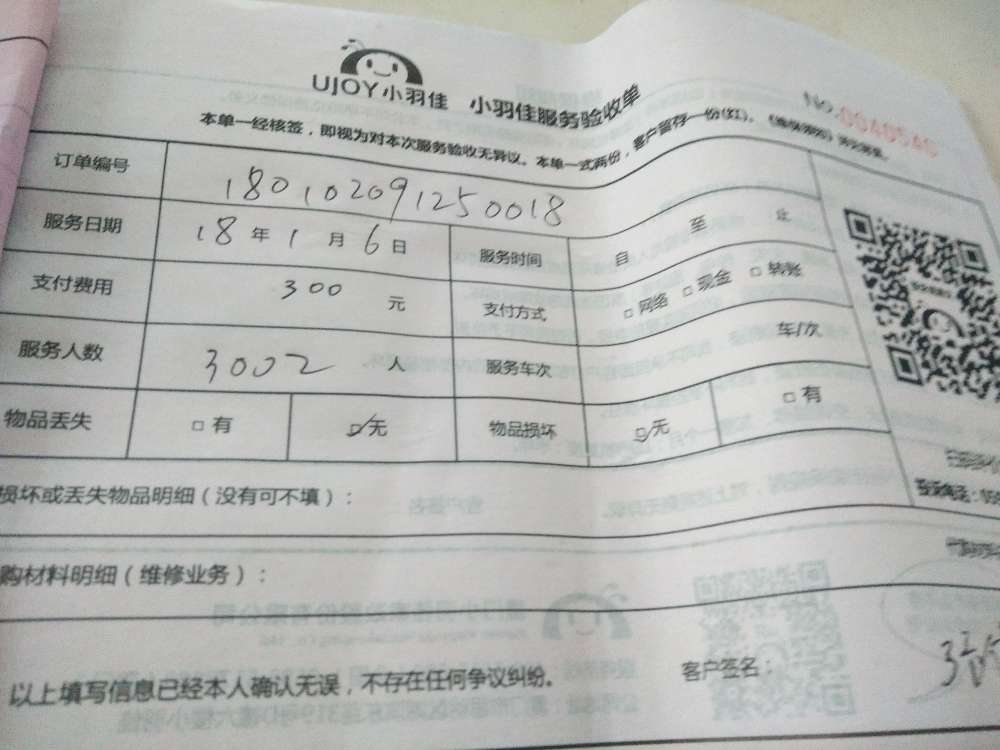 UJOY小羽佳 小羽佳服务验收单
No.
本单一经核签，即视为对本次服务验收无异议。本单一式两份，客户留存一份(红)。
订单编号 180102091250018
服务日期 18 年 1 月 6 日 服务时间 自 至 止
支付费用 300 元 支付方式 □ 网络 □ 现金 □ 转账
服务人数 3002 人 服务车次 车/次
物品丢失 □ 有 ☑无 物品损坏 ☑无 □ 有
损坏或丢失物品明细（没有可不填）：
购材料明细（维修业务）：
以上填写信息已经本人确认无误，不存在任何争议纠纷。 客户签名：